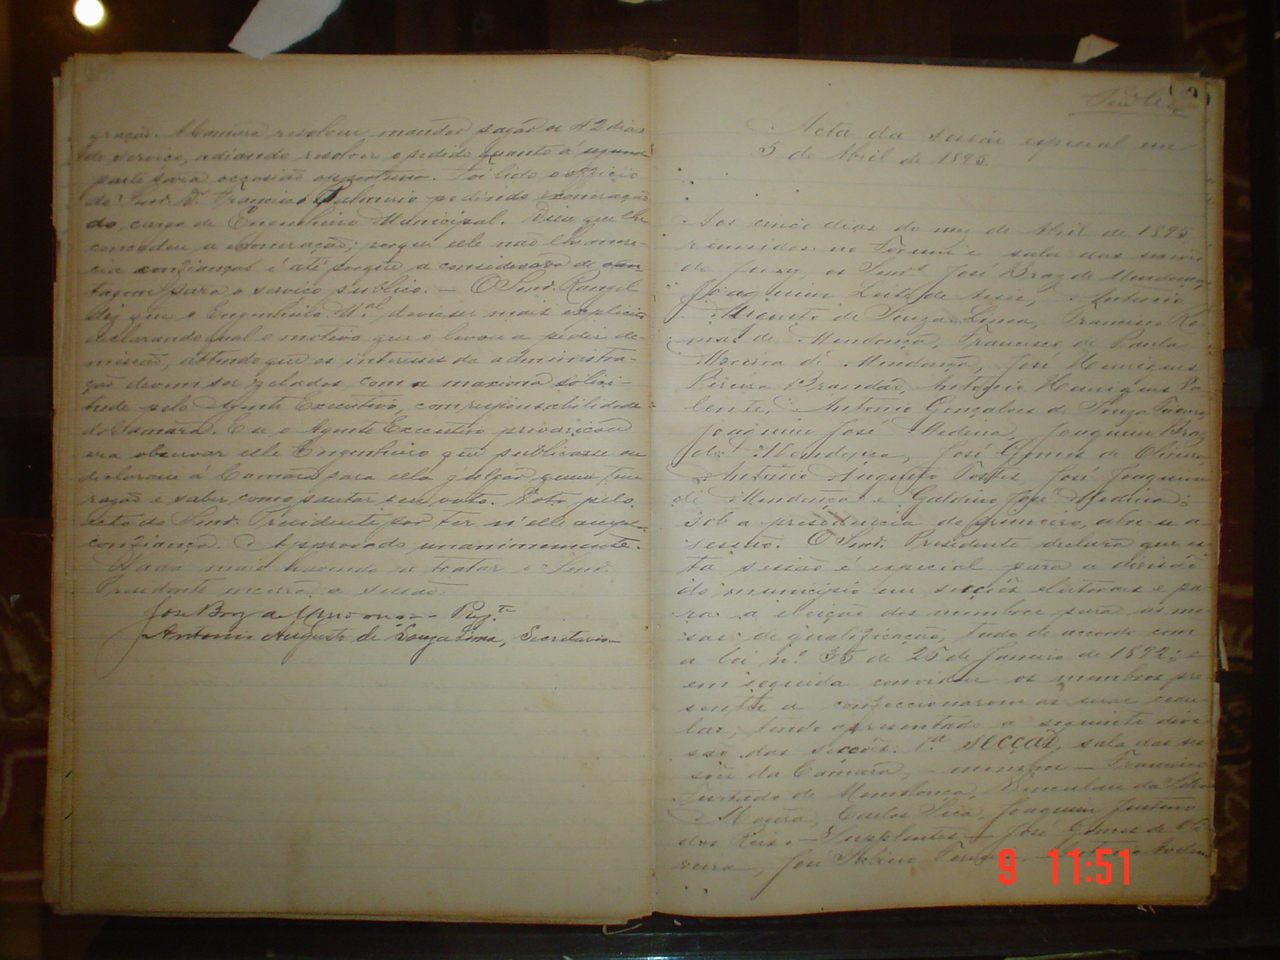 gração. A Camara resolveu mandar pagar os 42 dias
de serviço, adiando resolver o pedido quanto á segunda
parte para occasião opportuna. Foi lido o officio
do Snr. Dr. Francisco Palmerio pedindo exoneração
do cargo de Engenheiro Municipal. Disse que lhe
concedeu a exoneração; porque elle não lhe mere-
cia confiança e até porque a considerava de
para o serviço publico. — O Snr. Rangel
diz que o Engenheiro Mal. devia ser mais explicito
declarando qual o motivo que o levou a pedir de-
missão, attendo que os interesses da administra-
ção devem ser zelados com a maxima solici-
tude pelo Agente Executivo, com responsabilidade
da Camara. E se o Agente Executivo prevaricou
era observar elle Engenheiro que publicasse ou
declarasse á Camara para ella
e saber como pautar seu voto. Vota pelo
acto do Snr. Presidente por ter n'elle
confiança. Approvado unanimemente.
Nada mais havendo a tratar o Snr.
Presidente encerra a sessão.
José Braz de Mendonça Prezte
Antonio Augusto de Souza Lima, Secretario
Acta da sessão especial em
5 de Abril de 1895.
Aos cinco dias do mez de Abril de 1895
reunidos no Forum e sala das sessões
do Jury, os Snrs. José Braz de Mendonça,
Joaquim Leite de, Antonio
Augusto de Souza Lima, Francisco Ro-
mas de Mendonça, Francisco de Paula
Moreira de Mendonça, José Henriques
Pereira Brandão, Antonio Henriques Va-
lente, Antonio Gonçalves de Souza
Joaquim José Medina, Joaquim Braz
de Mendonça, José Gomes de Oliveira,
Antonio Augusto, José Joaquim
de Mendonça e Galdino José Medina;
sob a presidencia do primeiro, abre-se a
sessão. O Snr. Presidente declara que es-
ta sessão é especial para a divisão
do municipio em secções eleitoraes e pa-
ra a eleição dos membros para as me-
sas de qualificação, tudo de accordo com
a lei nº 35 de 26 de Janeiro de 1892; e
em seguida convidou os membros pre-
sentes a confeccionarem as suas cedu-
las, tendo apresentado a seguinte divi-
são das secções. 1.ª secção, sala das ses-
sões da Camara, — membros — Francisco
Furtado de Mendonça, Venceslau da Silva
Moura, Carlos, Joaquim Justino
dos Reis. — Supplentes — José Gomes de Oli-
veira, José Albino
9 11:51